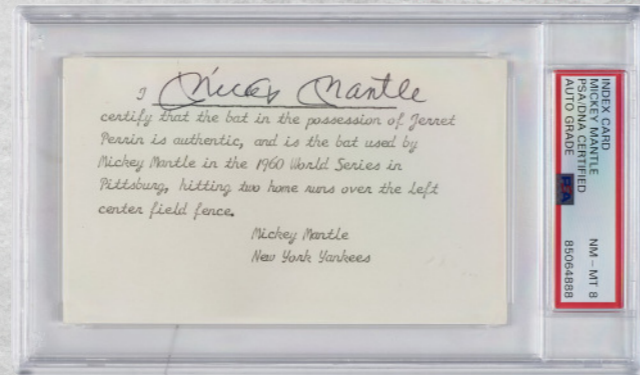 I Mickey Mantle
certify that the bat in the possession of Jerret
Perrin is authentic, and is the bat used by
Mickey Mantle in the 1960 World Series in
Pittsburg, hitting two home runs over the left
center field fence.
Mickey Mantle
New York Yankees
INDEX CARD
MICKEY MANTLE
PSA/DNA CERTIFIED
AUTO GRADE
NM - MT 8
PSA
85064888